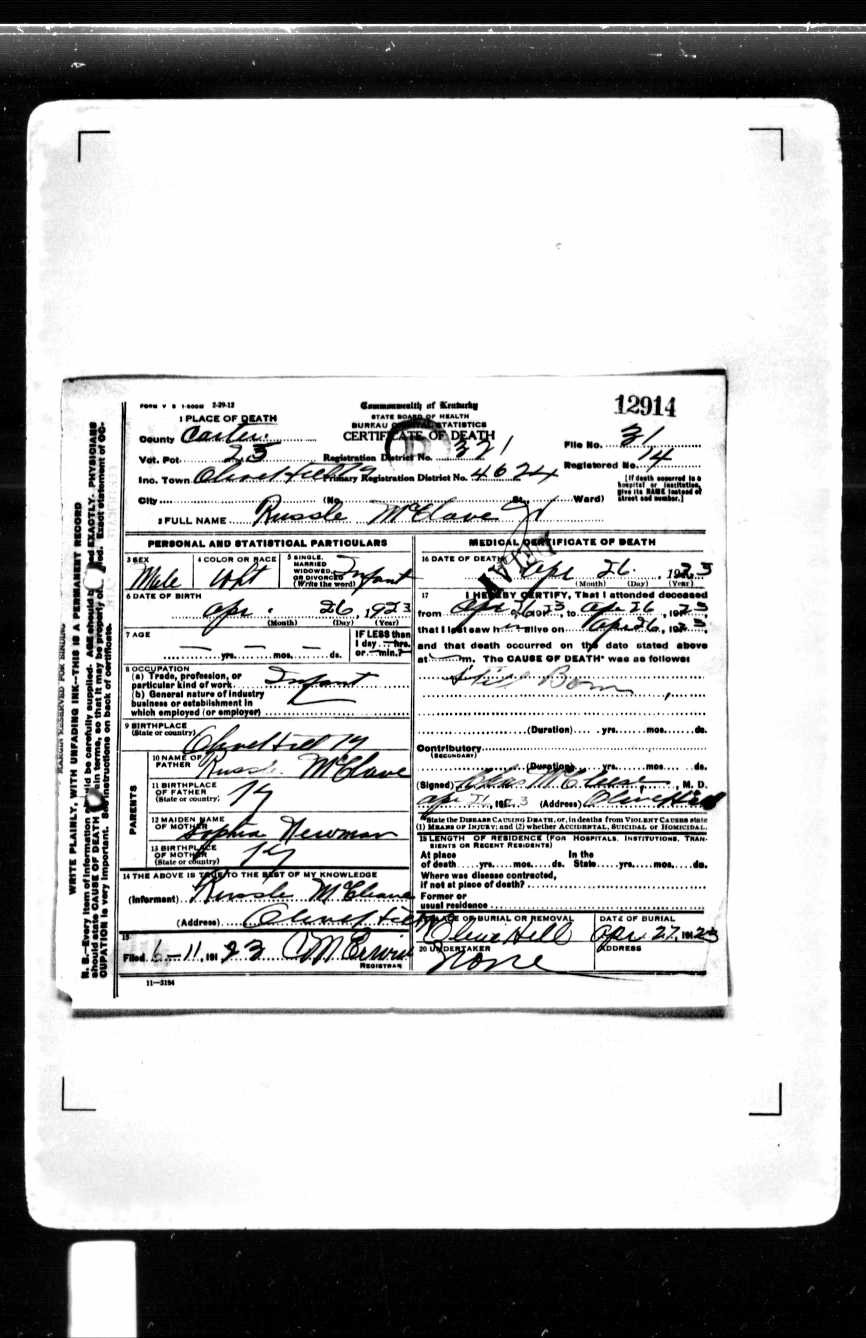 FORM V S 1-500M 2-29-12
Commonwealth of Kentucky
STATE BOARD OF HEALTH
BUREAU OF VITAL STATISTICS
CERTIFICATE OF DEATH
12914
1 PLACE OF DEATH
County Carter
Vot. Pct. 23
Registration District No. 321
File No. 31
Inc. Town Olive Hill Ky
Primary Registration District No. 4624
Registered No. 14
City (No. St. Ward)
[If death occurred in a hospital or institution, give its NAME instead of street and number.]
2 FULL NAME Russle McClave Jr
PERSONAL AND STATISTICAL PARTICULARS
3 SEX Male
4 COLOR OR RACE Wht
5 SINGLE, MARRIED WIDOWED, OR DIVORCED (Write the word) Infant
6 DATE OF BIRTH
Apr. 26, 1923
(Month) (Day) (Year)
7 AGE
yrs. mos. ds.
IF LESS than 1 day hrs. or min.?
8 OCCUPATION
(a) Trade, profession, or particular kind of work Infant
(b) General nature of industry business or establishment in which employed (or employer)
9 BIRTHPLACE
(State or country) Olive Hill Ky
PARENTS
10 NAME OF FATHER Russle McClave
11 BIRTHPLACE OF FATHER (State or country) Ky
12 MAIDEN NAME OF MOTHER Sophia Newman
13 BIRTHPLACE OF MOTHER (State or country) Ky
14 THE ABOVE IS TRUE TO THE BEST OF MY KNOWLEDGE
(Informant) Russle McClave
(Address) Olive Hill
15
Filed 6-11, 1923
REGISTRAR
11-3184
MEDICAL CERTIFICATE OF DEATH
16 DATE OF DEATH Apr 26, 1923
(Month) (Day) (Year)
17 I HEREBY CERTIFY, That I attended deceased
from Apr 26 23, to Apr 26, 1923,
that I last saw h alive on Apr 26, 1923,
and that death occurred on the date stated above
at m. The CAUSE OF DEATH* was as follows:
Still Born
(Duration) yrs. mos. ds.
Contributory
(SECONDARY)
(Duration) yrs. mos. ds.
(Signed) Chas McCleese, M. D.
(Address) Olive Hill
*State the DISEASE CAUSING DEATH, or, in deaths from VIOLENT CAUSES state
(1) MEANS OF INJURY; and (2) whether ACCIDENTAL, SUICIDAL or HOMICIDAL.
18 LENGTH OF RESIDENCE (FOR HOSPITALS, INSTITUTIONS, TRANSIENTS OR RECENT RESIDENTS)
At place of death yrs. mos. ds. In the State yrs. mos. ds.
Where was disease contracted, if not at place of death?
Former or usual residence
19 PLACE OF BURIAL OR REMOVAL
Olive Hill
DATE OF BURIAL
Apr 27, 1923
20 UNDERTAKER
None
ADDRESS
MARGIN RESERVED FOR BINDING
WRITE PLAINLY, WITH UNFADING INK—THIS IS A PERMANENT RECORD
N. B.—Every item of information should be carefully supplied. AGE should be stated EXACTLY. PHYSICIANS
should state CAUSE OF DEATH in plain terms, so that it may be properly classified. Exact statement of OC-
CUPATION is very important. See instructions on back of certificate.